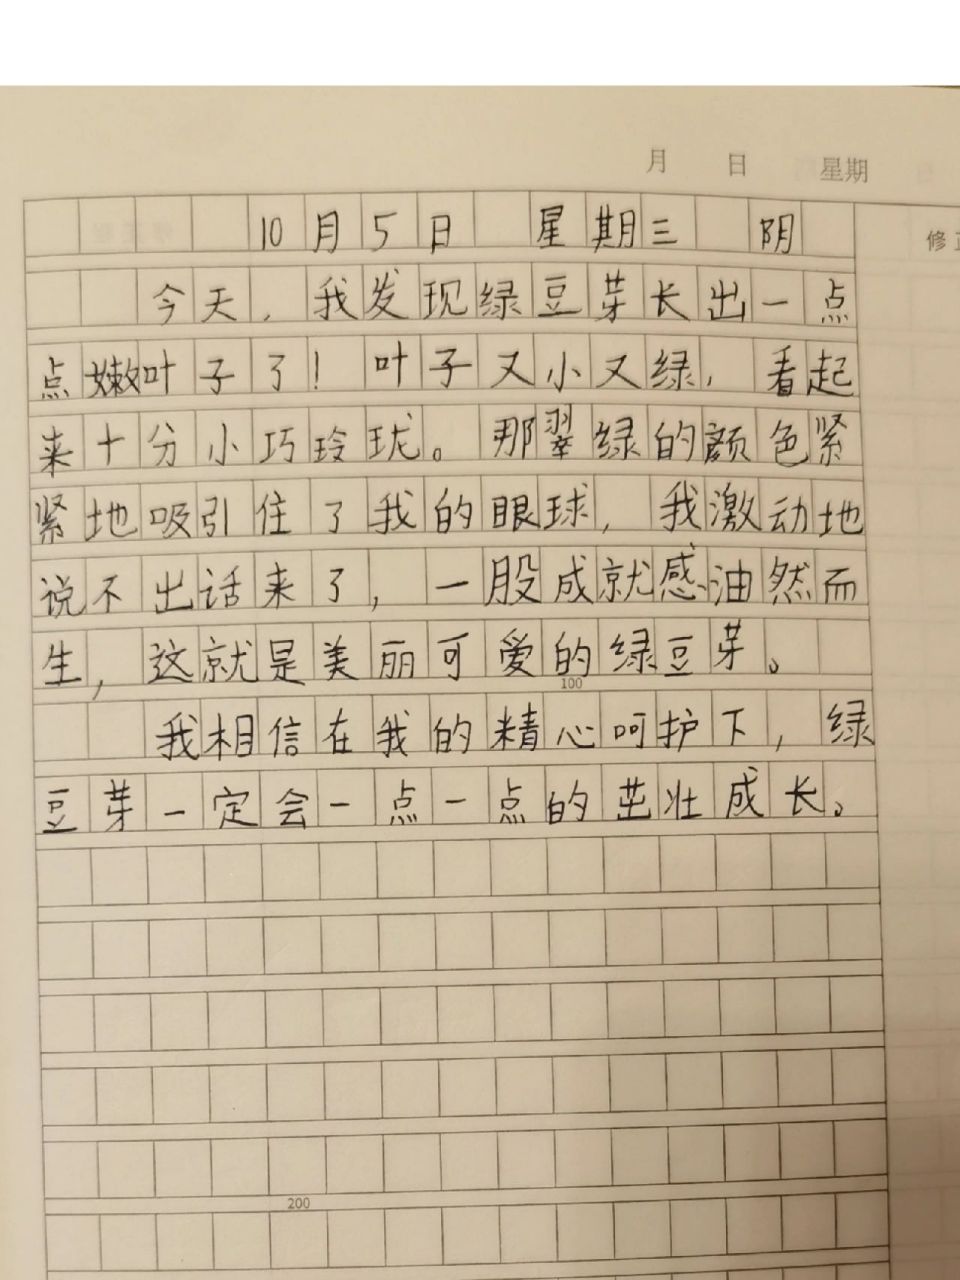 月 日 星期
修正
10月5日 星期三 阴
今天，我发现绿豆芽长出一点
点嫩叶子了！叶子又小又绿，看起
来十分小巧玲珑。那翠绿的颜色紧
紧地吸引住了我的眼球，我激动地
说不出话来了，一股成就感油然而
生，这就是美丽可爱的绿豆芽。
100
我相信在我的精心呵护下，绿
豆芽一定会一点一点的茁壮成长。
200